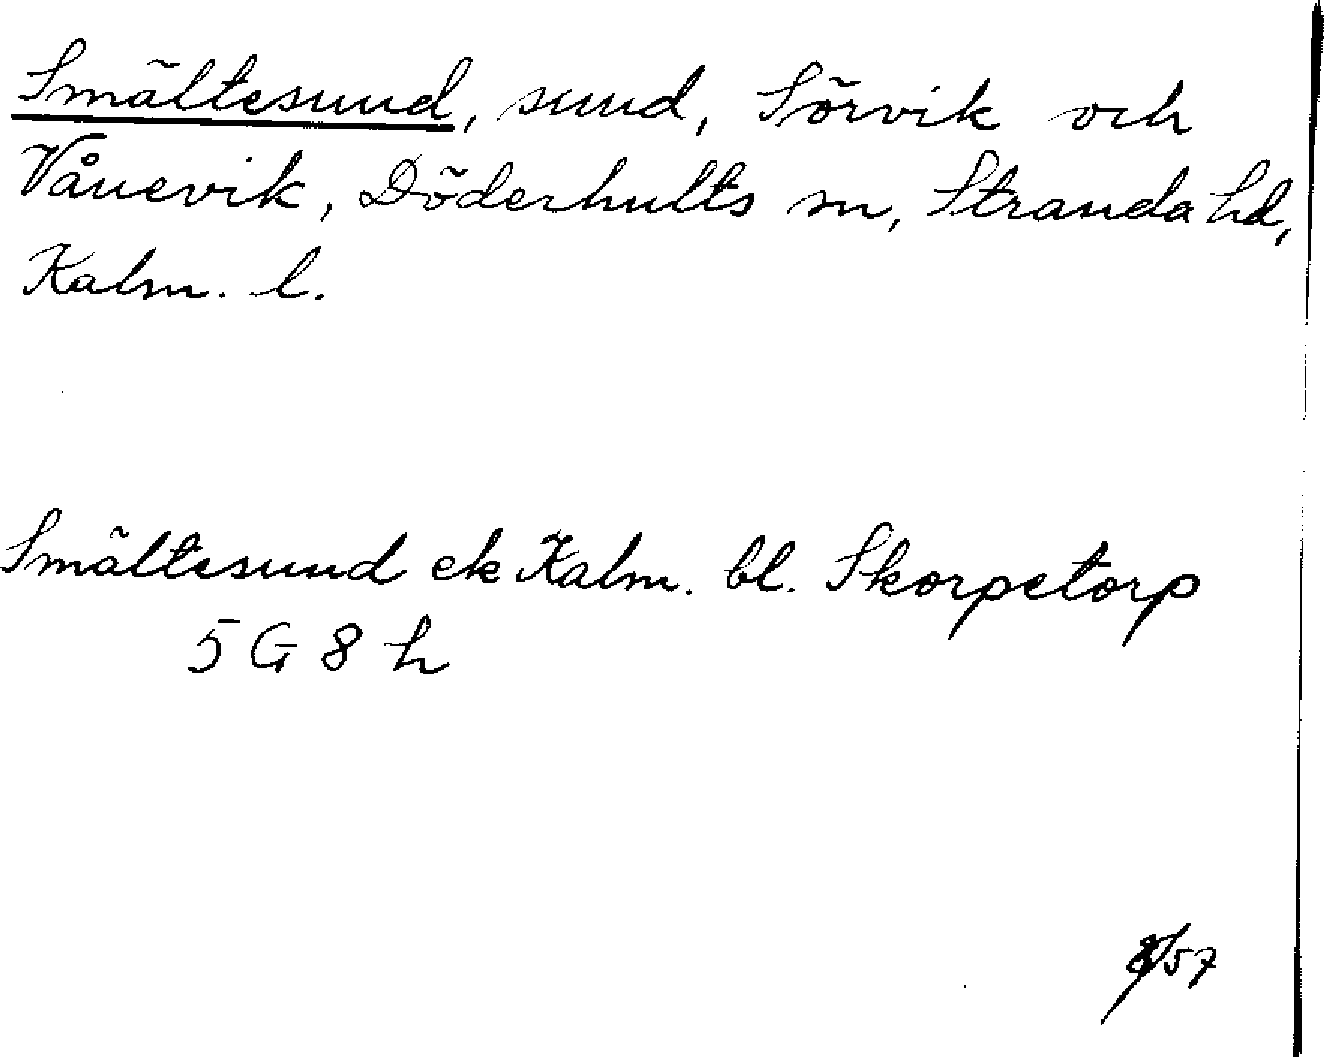 Smältesund, sund, Sörvik och
Vånevik, Döderhults sn, Stranda hd,
Kalm. l.
Smältesund ek Kalm. bl. Skorpetorp
5 G 8 h
/57